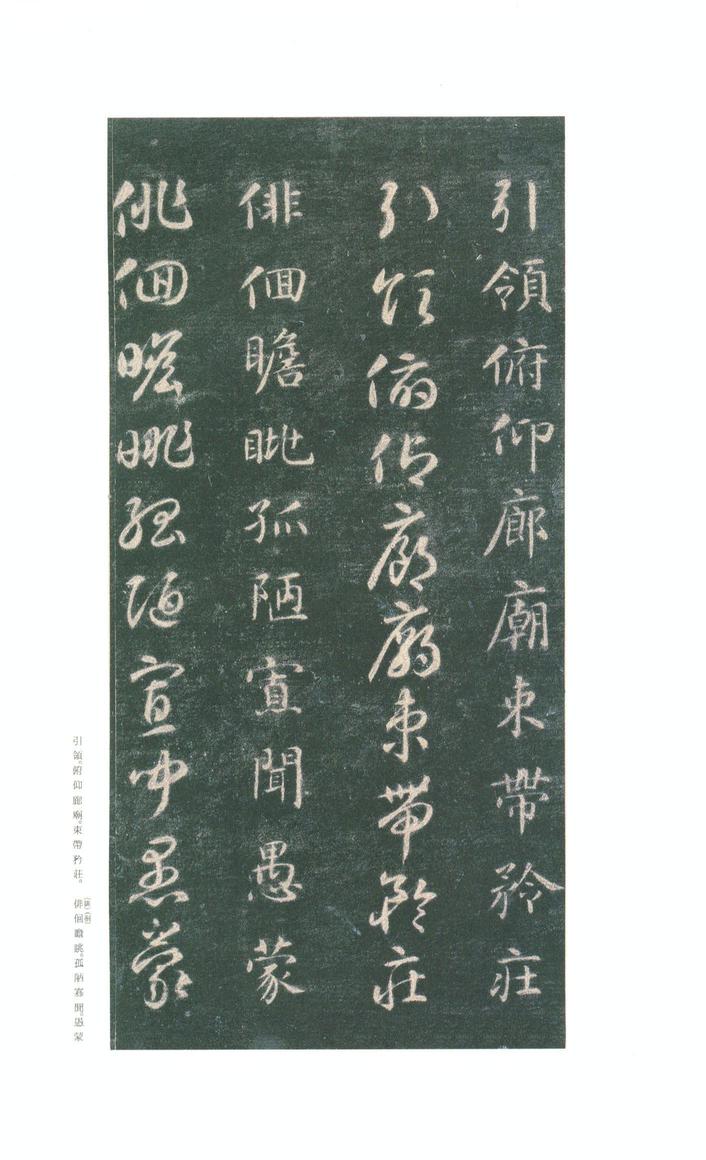 引領俯仰廊廟束帶矜莊
引領俯仰廊廟束帶矜莊
俳佪瞻眺孤陋寡聞愚蒙
俳佪瞻眺孤陋寡聞愚蒙
引領。俯仰廊廟。束帶矜莊。俳佪瞻眺。孤陋寡聞。愚蒙